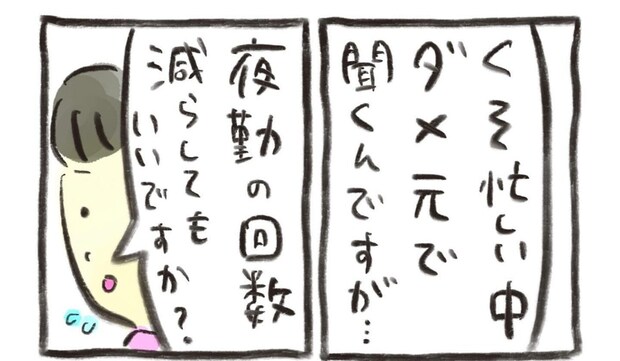 くそ忙しい中
ダメ元で
聞くんですが…
夜勤の回数
減らしても
いいですか？